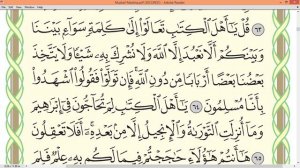 Mushaf Madina.pdf (SECURED) - Adobe Reader
٦٣ قُلْ يَٰٓأَهْلَ ٱلْكِتَٰبِ تَعَالَوْا۟ إِلَىٰ كَلِمَةٍ سَوَآءٍۭ بَيْنَنَا
وَبَيْنَكُمْ أَلَّا نَعْبُدَ إِلَّا ٱللَّهَ وَلَا نُشْرِكَ بِهِۦ شَيْـًٔا وَلَا يَتَّخِذَ
بَعْضُنَا بَعْضًا أَرْبَابًا مِّن دُونِ ٱللَّهِ ۚ فَإِن تَوَلَّوْا۟ فَقُولُوا۟ ٱشْهَدُوا۟
بِأَنَّا مُسْلِمُونَ ٦٤ يَٰٓأَهْلَ ٱلْكِتَٰبِ لِمَ تُحَآجُّونَ فِىٓ إِبْرَٰهِيمَ
وَمَآ أُنزِلَتِ ٱلتَّوْرَىٰةُ وَٱلْإِنجِيلُ إِلَّا مِنۢ بَعْدِهِۦٓ ۚ أَفَلَا تَعْقِلُونَ
٦٥ هَٰٓأَنتُمْ هَٰٓؤُلَآءِ حَٰجَجْتُمْ فِيمَا لَكُم بِهِۦ عِلْمٌ فَلِمَ